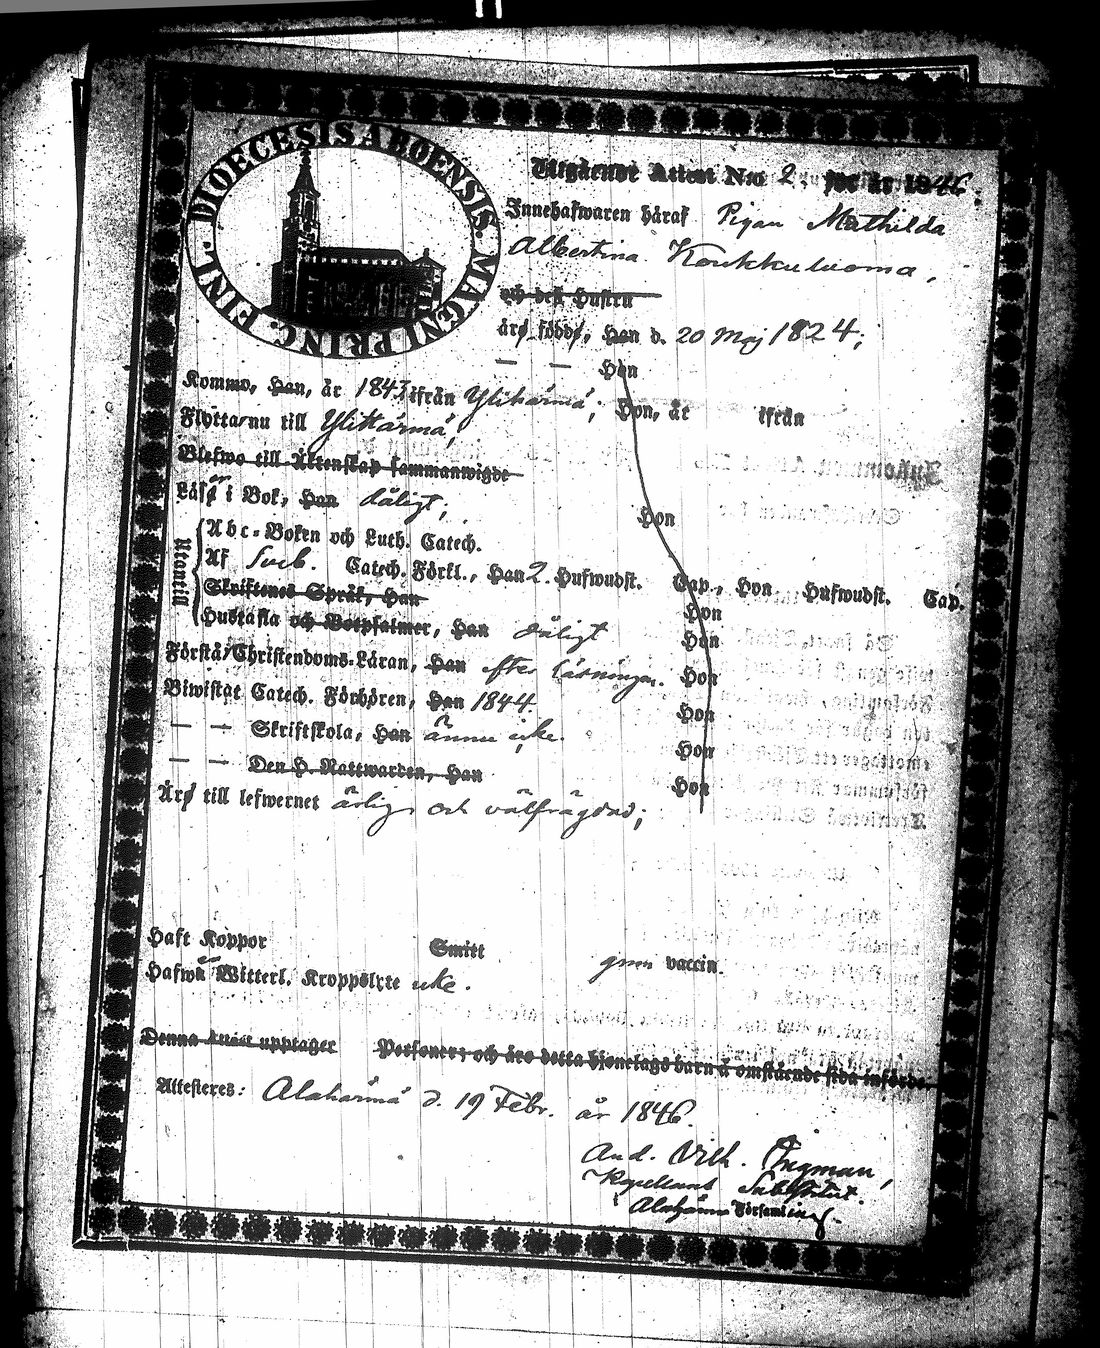 DIOECESIS ABOENSIS. MAGNI PRINC. FINL.
Utgående Attest N:o 2. för år 1846.
Innehafwaren häraf Pigan Mathilda
Albertina Koukkuluoma,
och dess Hustru
äro födde, Han d. 20 Maj 1824;
— — Hon
Kommo, Han, år 1843 ifrån Ylihärmä; Hon, år ifrån
Flytta nu till Ylihärmä,
Blefwo till Äktenskap sammanwigde
Läser i Bok, Han dåligt, Hon
Utantill
Abc-Boken och Luth. Catech.
Af Sveb. Catech. Förkl., Han 2. Hufwudst. Cap., Hon Hufwudst. Cap.
Skriftenes Språk, Han Hon
Hustafla och Botpsalmer, Han dåligt Hon
Förstå Christendoms-Läran, Han efter läsningen. Hon
Biwistat Catech. Förhören, Han 1844. Hon
— — Skriftskola, Han ännu icke. Hon
— — Den H. Nattwarden, Han Hon
Äro till lefwernet ärlig och välfrägdad;
Haft Koppor Smitt genom vaccin.
Hafwa Witterl. Kroppslyte icke.
Denna Attest upptager Personer; och äro detta hjonelags barn å omstående sida införde.
Attesteres: Alahärmä d. 19 Febr. år 1846.
And. Vilh. Ingman,
Kapellans Substitut.
Alahärmä Församling.
Inkommen Attest